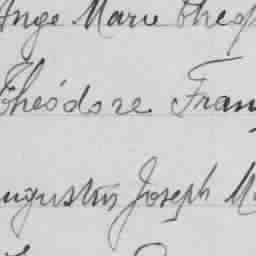 Ange Marie Theop
Théodore Fran
Augustus Joseph M